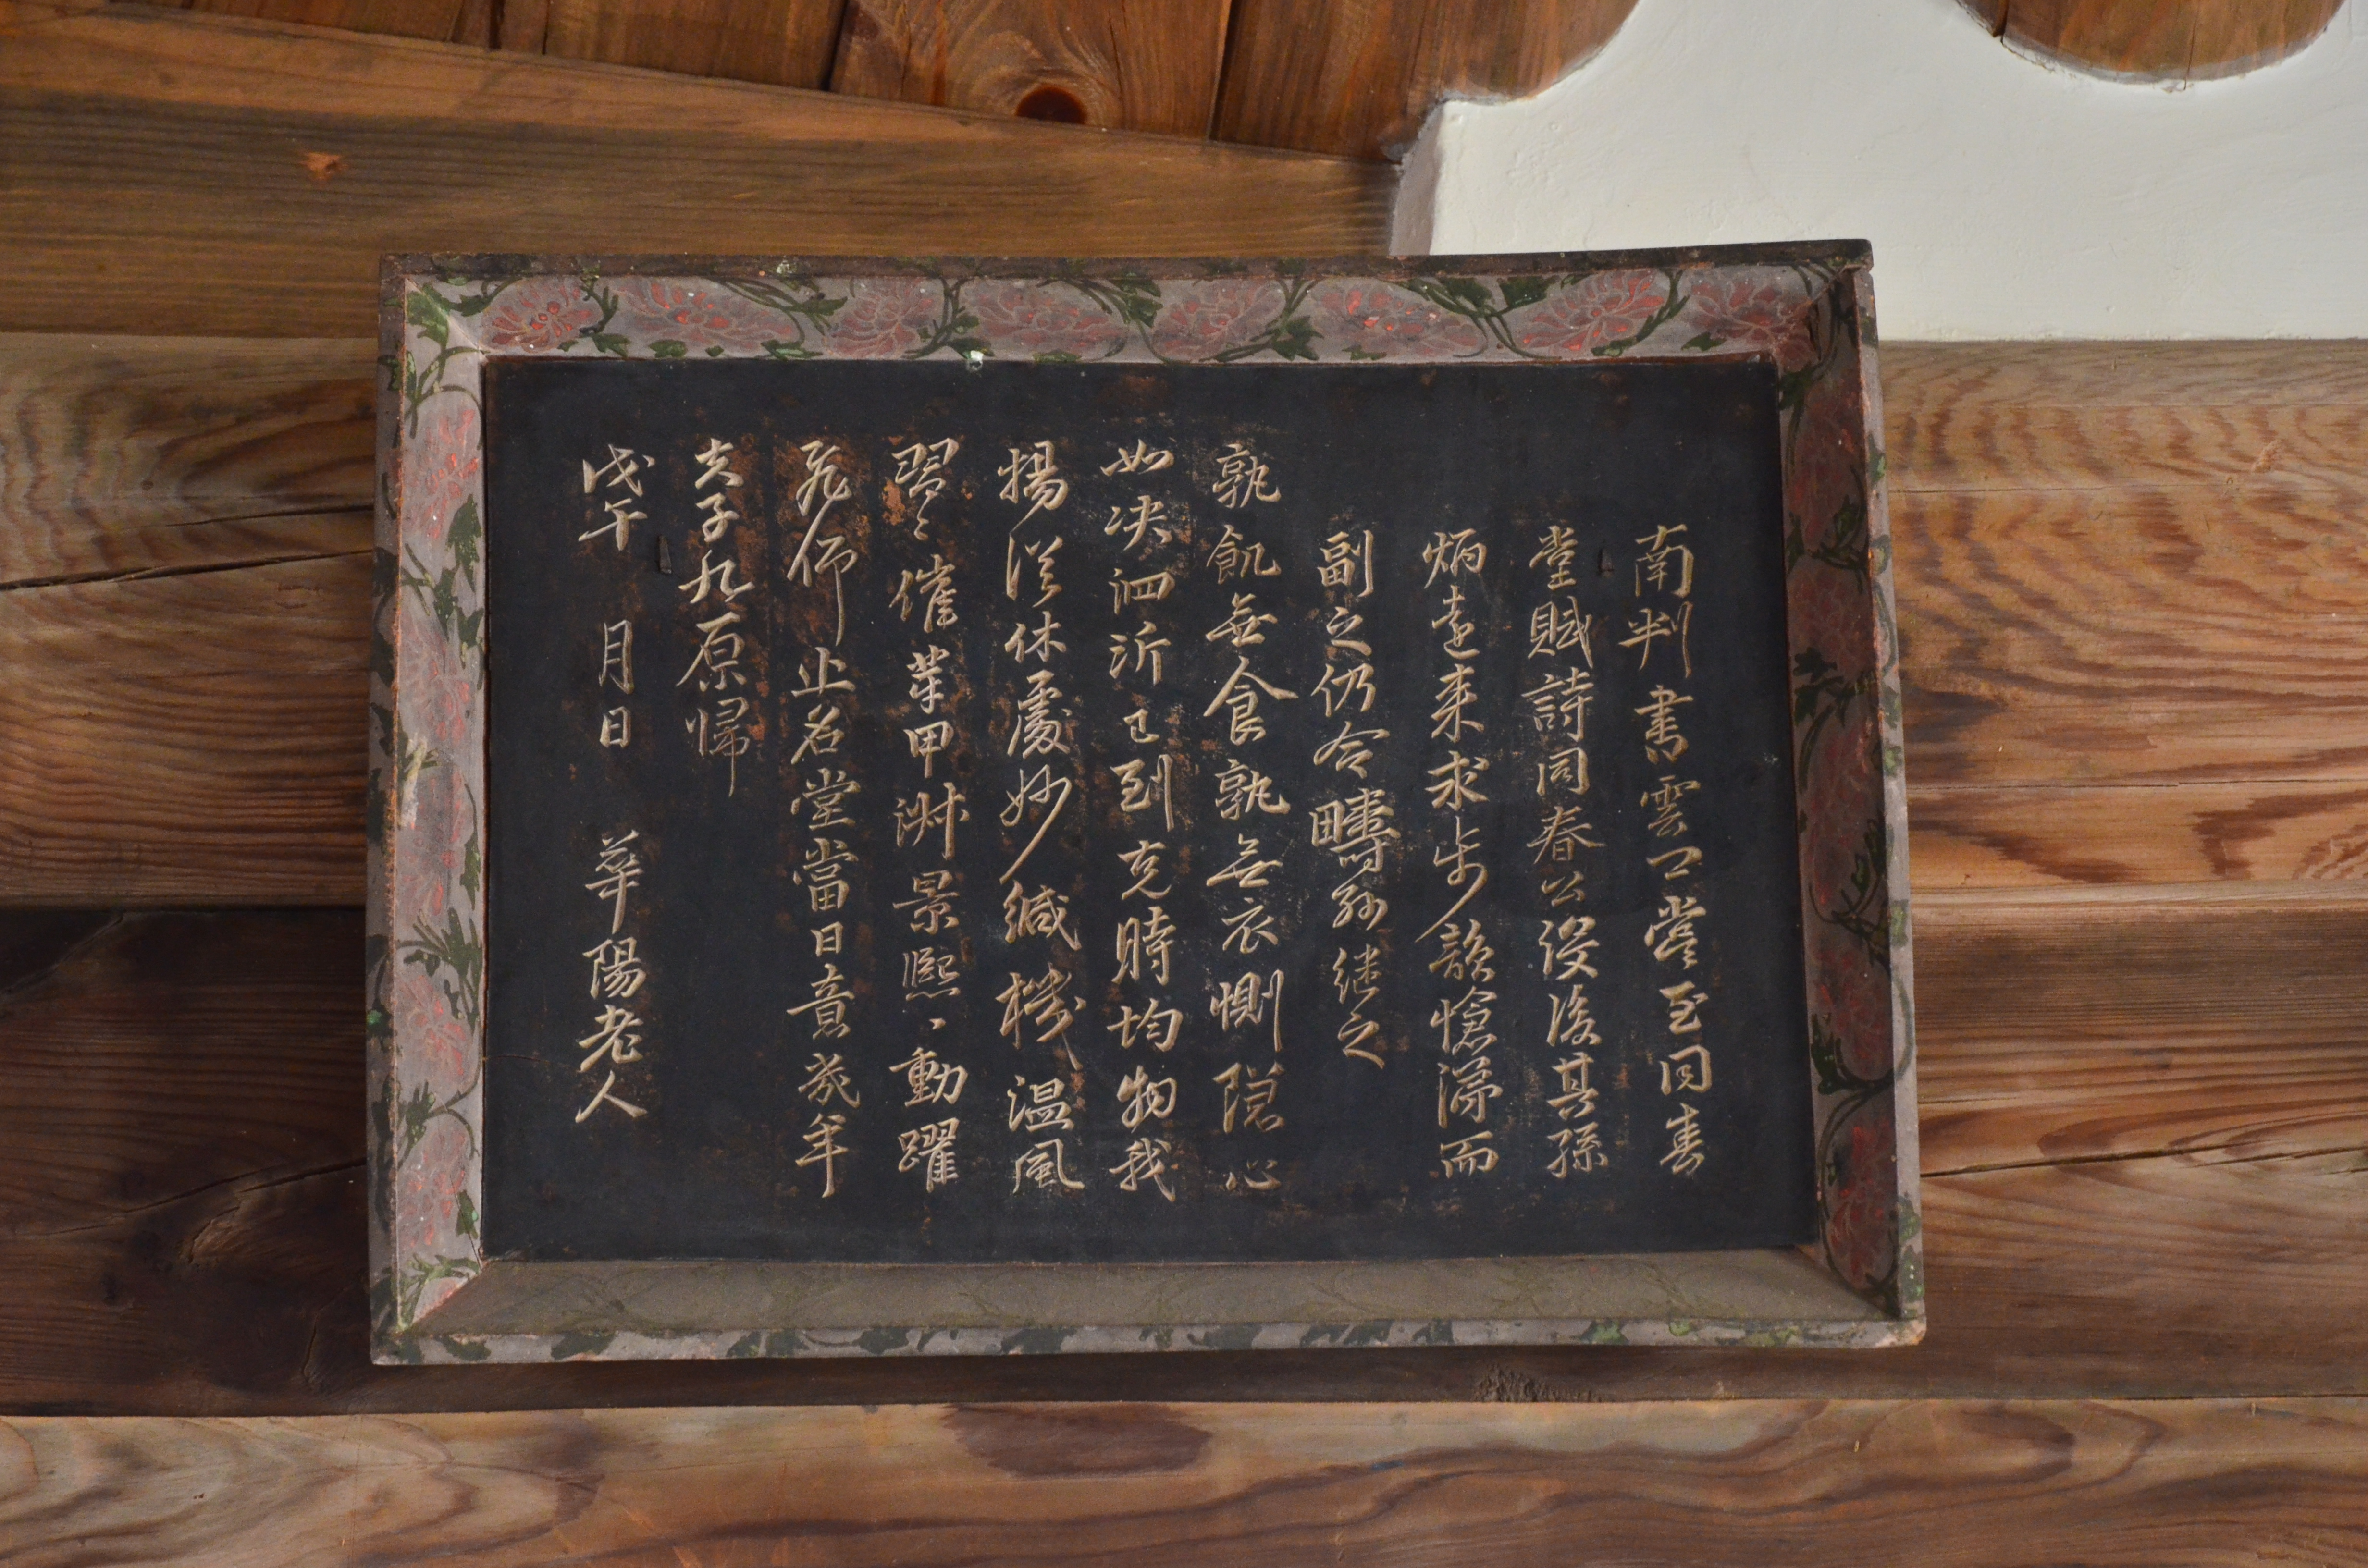 南判書雲卿嘗至同春
堂賦詩同春公沒後其孫
炳遠來求步韻愴涕而
副之仍令疇孫継之
孰飢無食孰無衣惻隠心
如決泗沂已到克時均物我
揚從休處妙緘機溫風
習〻催芽甲淑景熙〻動躍
飛 命止名堂當日意幾年
夫子九原歸
戊午 月日 華陽老人